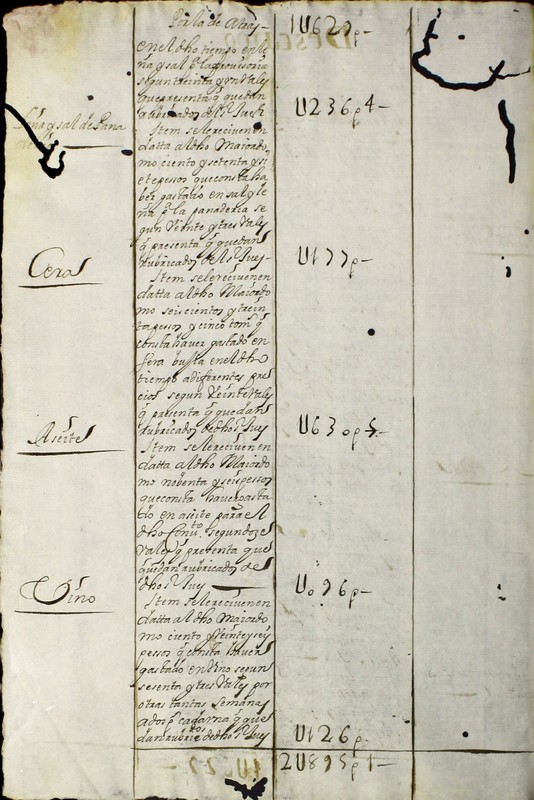 Por la de Atras —
1U629p —
en el dho tiempo en le
ña y sal pa la provisoria
segun treinta y un vales
que presenta q quedan
rubricados del sr Juez
U236p4 —
Leña y sal de Pana
Item se le reciven en
datta al dho Maiordo
mo ciento y setenta y si
ete pesos que consta ha
ber gastado en sal y le
ña pa la panaderia se
gun veinte y tres vales
q presenta q quedan
rubricados del sr Juez —
U177p —
Cera
Item se le reciven en
datta al dho Maiordo
mo seiscientos y trein
ta pesos y cinco tom q
consta haver gastado en
sera busta en el dho
tiempo a diferentes pre
cios segun veinte vales
q presenta q quedan
rubricados de dho sr Juez
U630p5 —
Aseite
Item se le reciven en
datta al dho Maiordo
mo nobenta y seis pesos
que consta haver gasta
do en aseite para el
dho Convto segun doze
vales q presenta que
quedan rubricados de
dho sr Juez —
U096p —
Vino
Item se le reciven en
datta al dho Maiordo
mo ciento y veinte y seis
pesos q consta haver
gastado en vino segun
sesenta y tres vales por
otras tantas semanas
a dos ps cada una q que
dan rubricdos de dho sr Juez
U126p
2U895p1 —